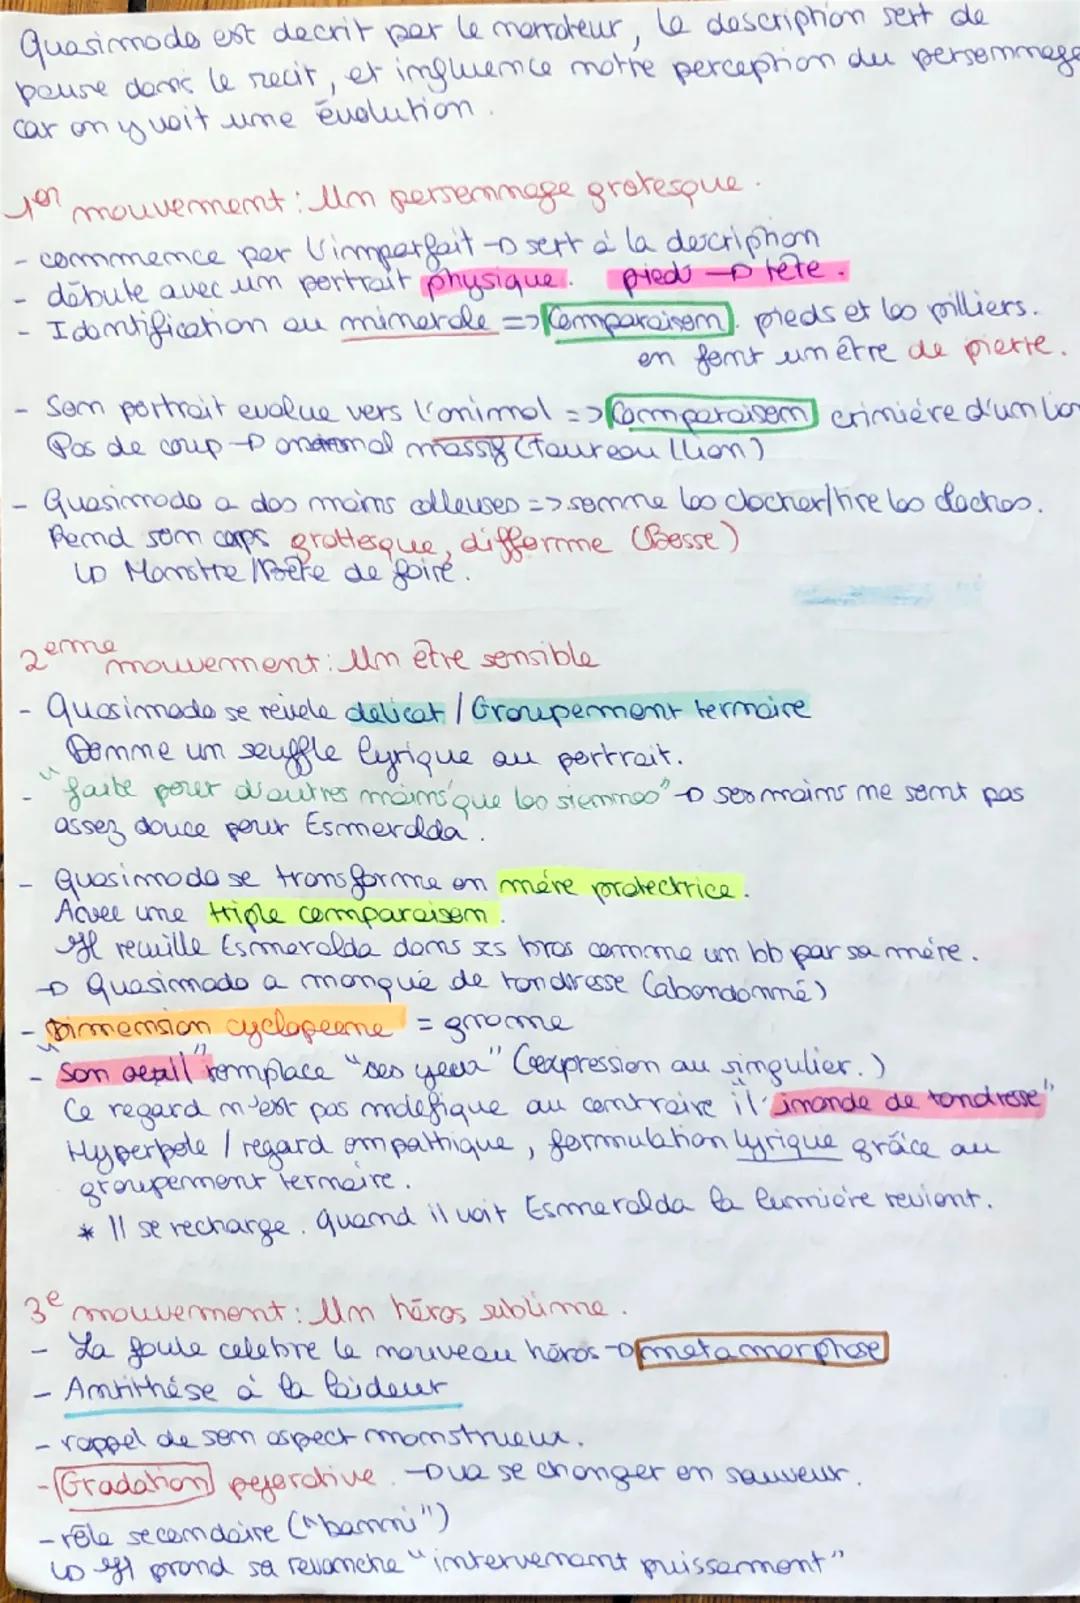 Quasimodo est decrit par le narrateur, la description sert de
pause dans le recit, et influence notre perception du personnage
car on y voit une évolution.
1er mouvement : Un personnage grotesque.
- commence par l'imparfait → sert à la description
- débute avec un portrait physique. pieds → tête.
- Identification au minerale => Comparaison. pieds et les pilliers.
en font un être de pierre.
- Son portrait evolue vers l'animal => Comparaison crinière d'un lion
Pas de coup → animal massif (taureau / lion)
- Quasimodo a des mains calleuses => sonne les clocher/tire les cloches.
Rend son corps grottesque, difforme (Bosse)
↳ Monstre / Bête de foire.
2eme mouvement : Un être sensible
- Quasimodo se révele delicat / Groupement ternaire
Donne un souffle lyrique au portrait.
- "faite pour d'autres mains que les siennes" → ses mains ne sont pas
assez douce pour Esmeralda.
- Quasimodo se transforme en mére protectrice.
Avec une triple comparaison.
Il recuille Esmeralda dans ses bras comme un bb par sa mére.
→ Quasimodo a manqué de tendresse (abandonné)
- Dimension cyclopeenne = gnome
- "son oeil" remplace "ses yeux" (expression au singulier.)
Ce regard n'est pas malefique au contraire il "inonde de tendresse"
Hyperbole / regard empathique, formulation lyrique grâce au
groupement ternaire.
* Il se recharge. Quand il voit Esmeralda la lumière revient.
3e mouvement : Un héros sublime.
- La foule celebre le nouveau héros → metamorphose
- Antithése à la laideur
- rappel de son aspect monstrueux.
- Gradation pejorative. → va se changer en sauveur.
- rôle secondaire ("banni")
↳ Il prend sa revanche "intervenant puissamment"